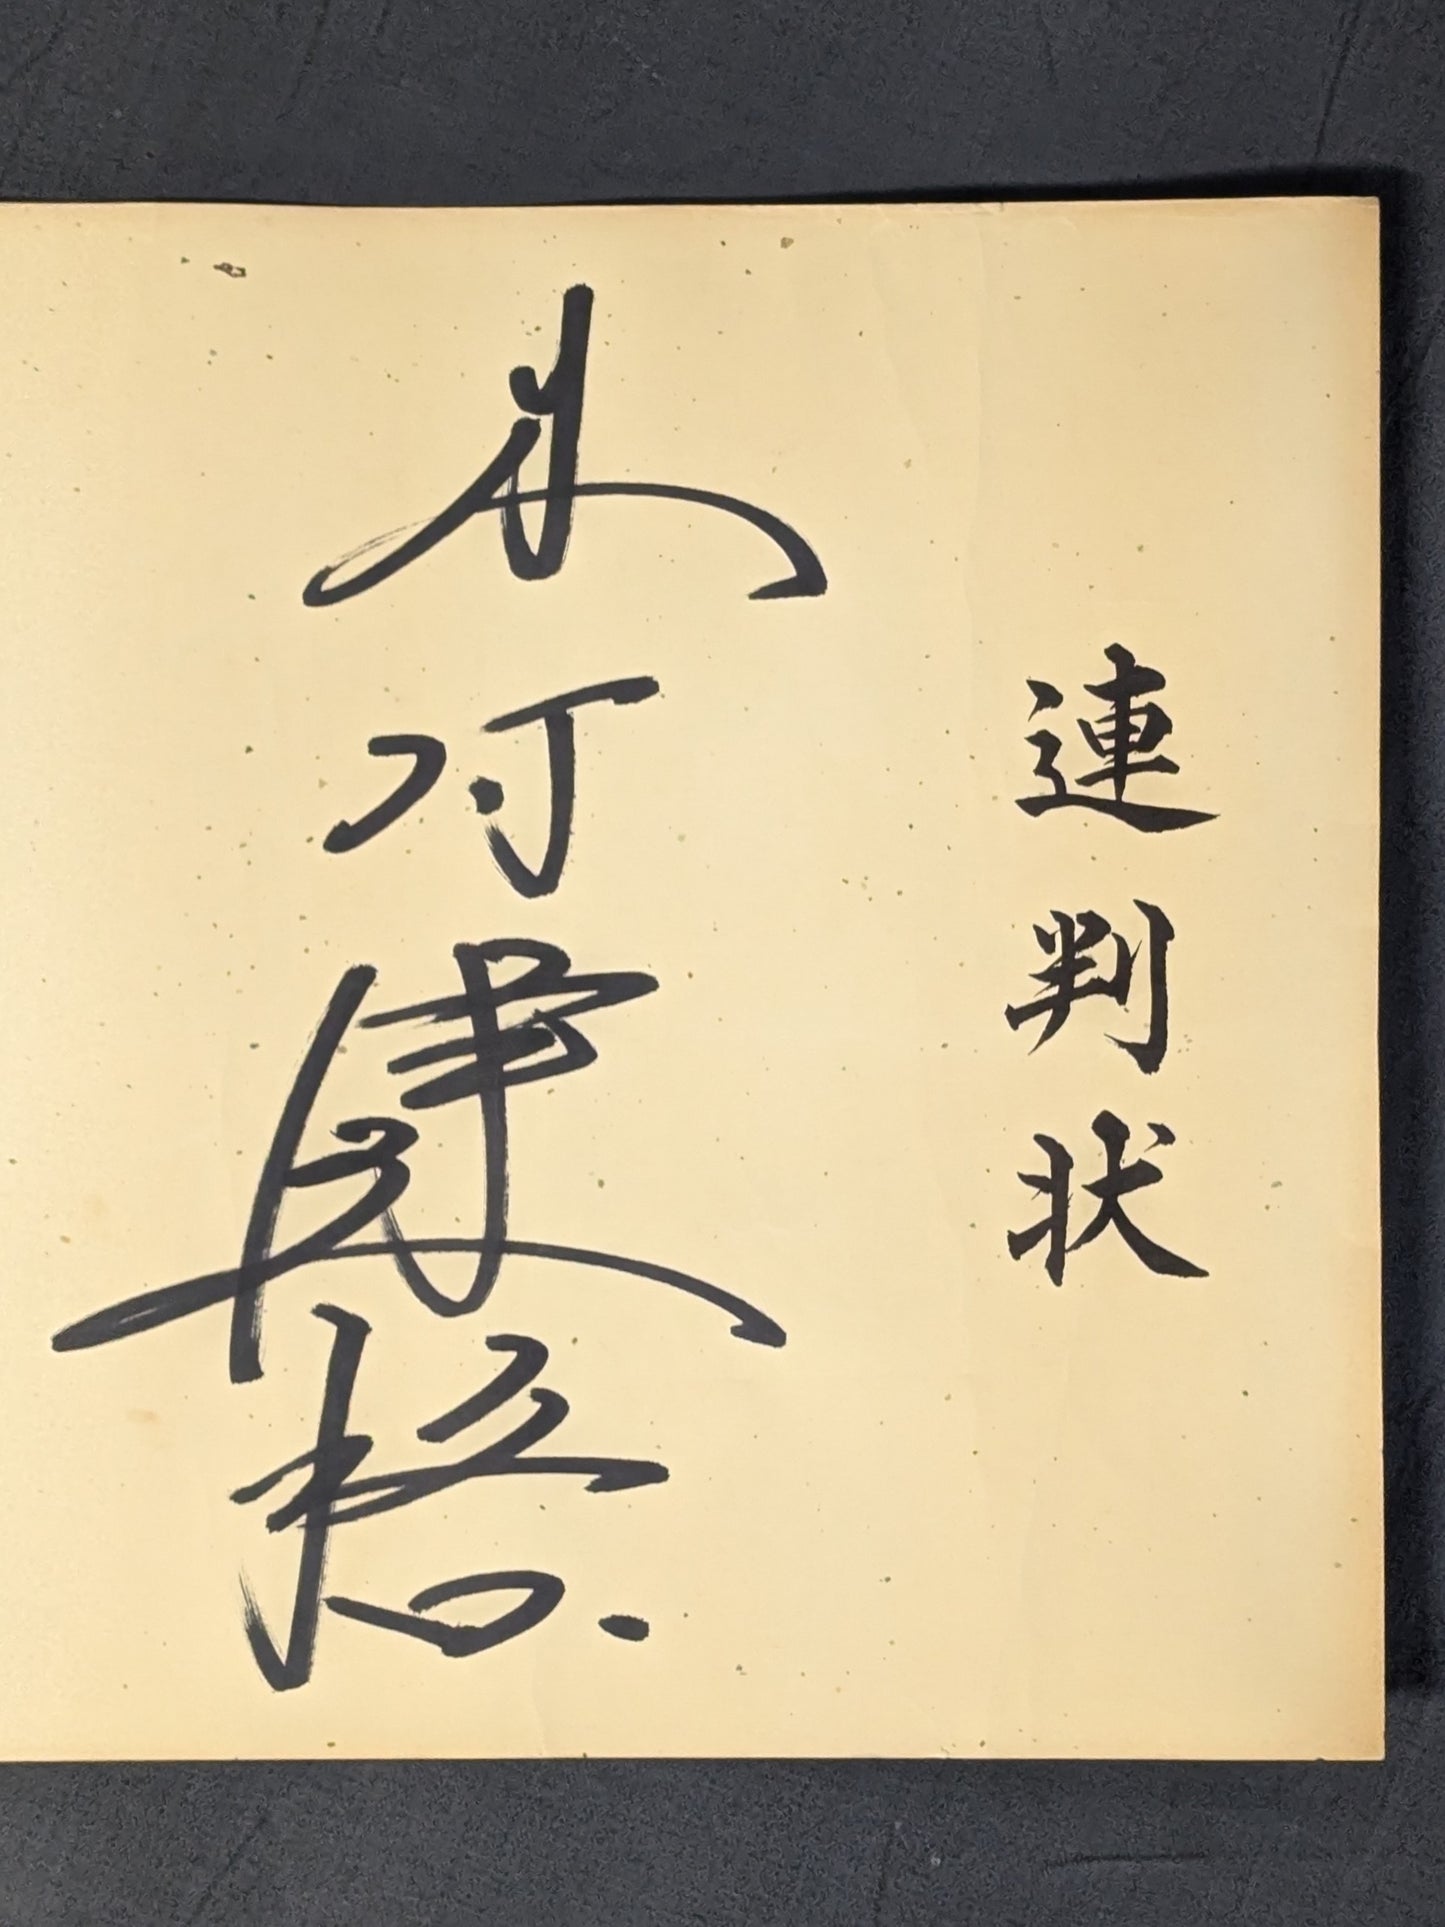 連判状
木村健悟